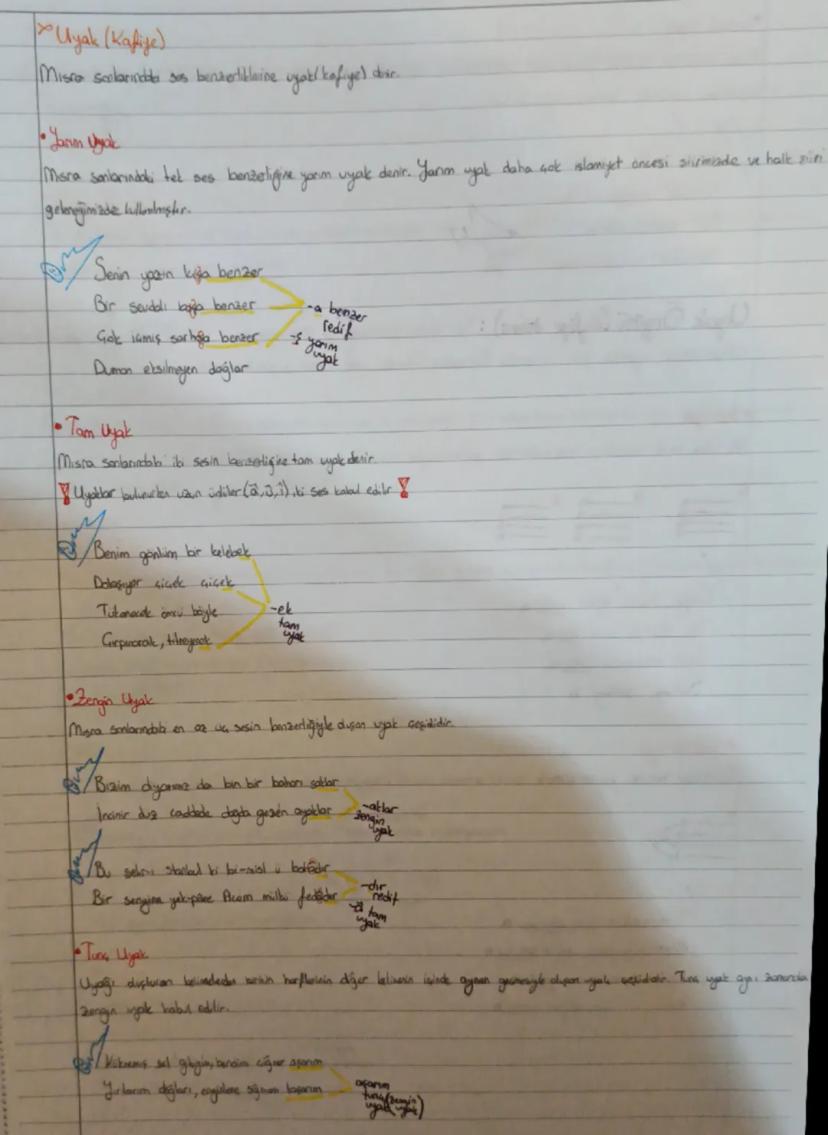 Uyak (Kafiye)
Mısra sonlarındaki ses benzerliklerine uyak (kafiye) denir.
• Yarım Uyak
Mısra sonlarındaki tek ses benzerliğine yarım uyak denir. Yarım uyak daha çok islamiyet öncesi şiirimizde ve halk şiiri
geleneğimizde kullanılmıştır.
Senin yazın kışa benzer
Bir sevdalı başa benzer
Çok içmiş sarhoşa benzer
Duman eksilmeyen dağlar
-a benzer
redif
-ş yarım
uyak
• Tam Uyak
Mısra sonlarındaki iki sesin benzerliğine tam uyak denir.
! Uyaklar bulunurken uzun ünlüler (â, û, î), iki ses kabul edilir !
Benim gönlüm bir kelebek
Dolaşıyor çiçek çiçek
Tükenecek ömrü böyle
Çırpınarak, titreyerek
-ek
tam
uyak
• Zengin Uyak
Mısra sonlarındaki en az üç sesin benzerliğiyle oluşan uyak çeşididir.
Bizim diyarımız da bin bir baharı saklar
İncinir düz caddede dağda gezen ayaklar
-aklar
zengin
uyak
Bu şehr-i stanbul ki bi-misl ü bahâdır
Bir sengine yek-pâre Acem mülkü fedâdır
-dır
redif
-â tam
uyak
• Tunç Uyak
Uyağı oluşturan kelimelerden birinin harflerinin diğer kelimenin içinde aynen geçmesiyle oluşan uyak çeşididir. Tunç uyak aynı zamanda
zengin uyak kabul edilir.
Kükremiş sel gibiyim, bendimi çiğner aşarım
Yırtarım dağları, enginlere sığmam taşarım
aşarım
tunç (zengin
uyak uyak)